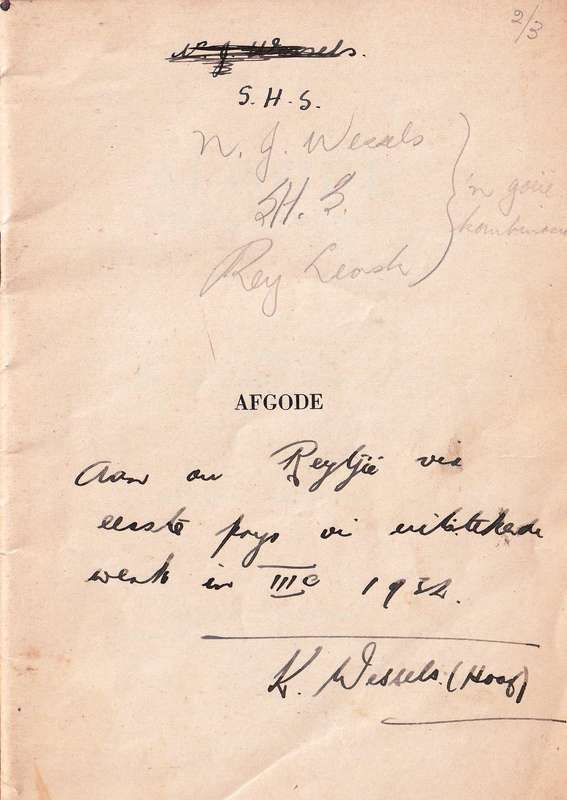 2/3
N. J. Wessels.
S. H. S.
N. J. Wessels
S.H.S.
Rey Leask
'n goeie
AFGODE
Aan ou Reytjie vir
eerste prys vi uitstekende
werk in IIIc 1932.
K. Wessels. (Hoof)